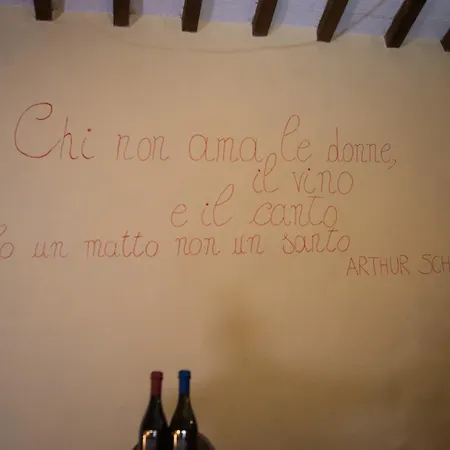 Chi non ama le donne,
il vino
e il canto
un matto non un santo
ARTHUR SCH